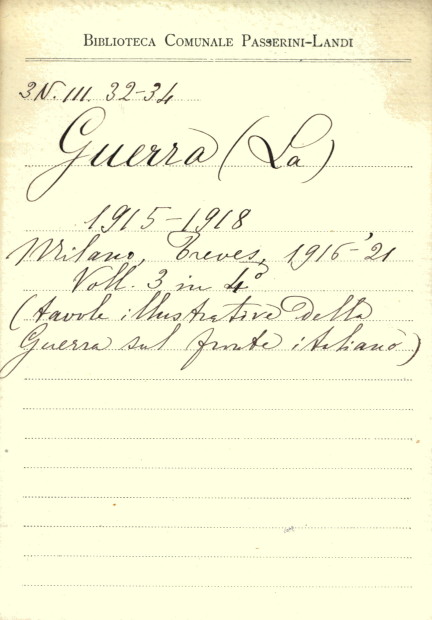 BIBLIOTECA COMUNALE PASSERINI-LANDI
3N. III. 32-34
Guerra (La)
1915-1918
Milano, Treves, 1916-'21
Voll. 3 in 4°
(tavole illustrative della
Guerra sul fronte italiano)